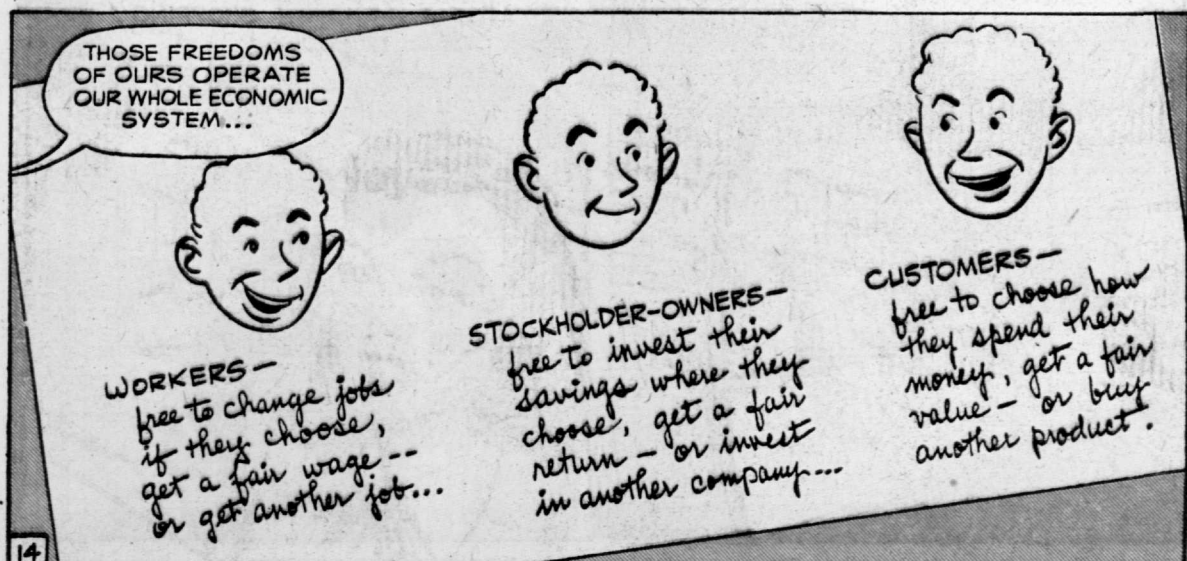 THOSE FREEDOMS
OF OURS OPERATE
OUR WHOLE ECONOMIC
SYSTEM...
WORKERS—
free to change jobs
if they choose,
get a fair wage --
or get another job...
STOCKHOLDER-OWNERS—
free to invest their
savings where they
choose, get a fair
return — or invest
in another company...
CUSTOMERS—
free to choose how
they spend their
money, get a fair
value — or buy
another product.
14